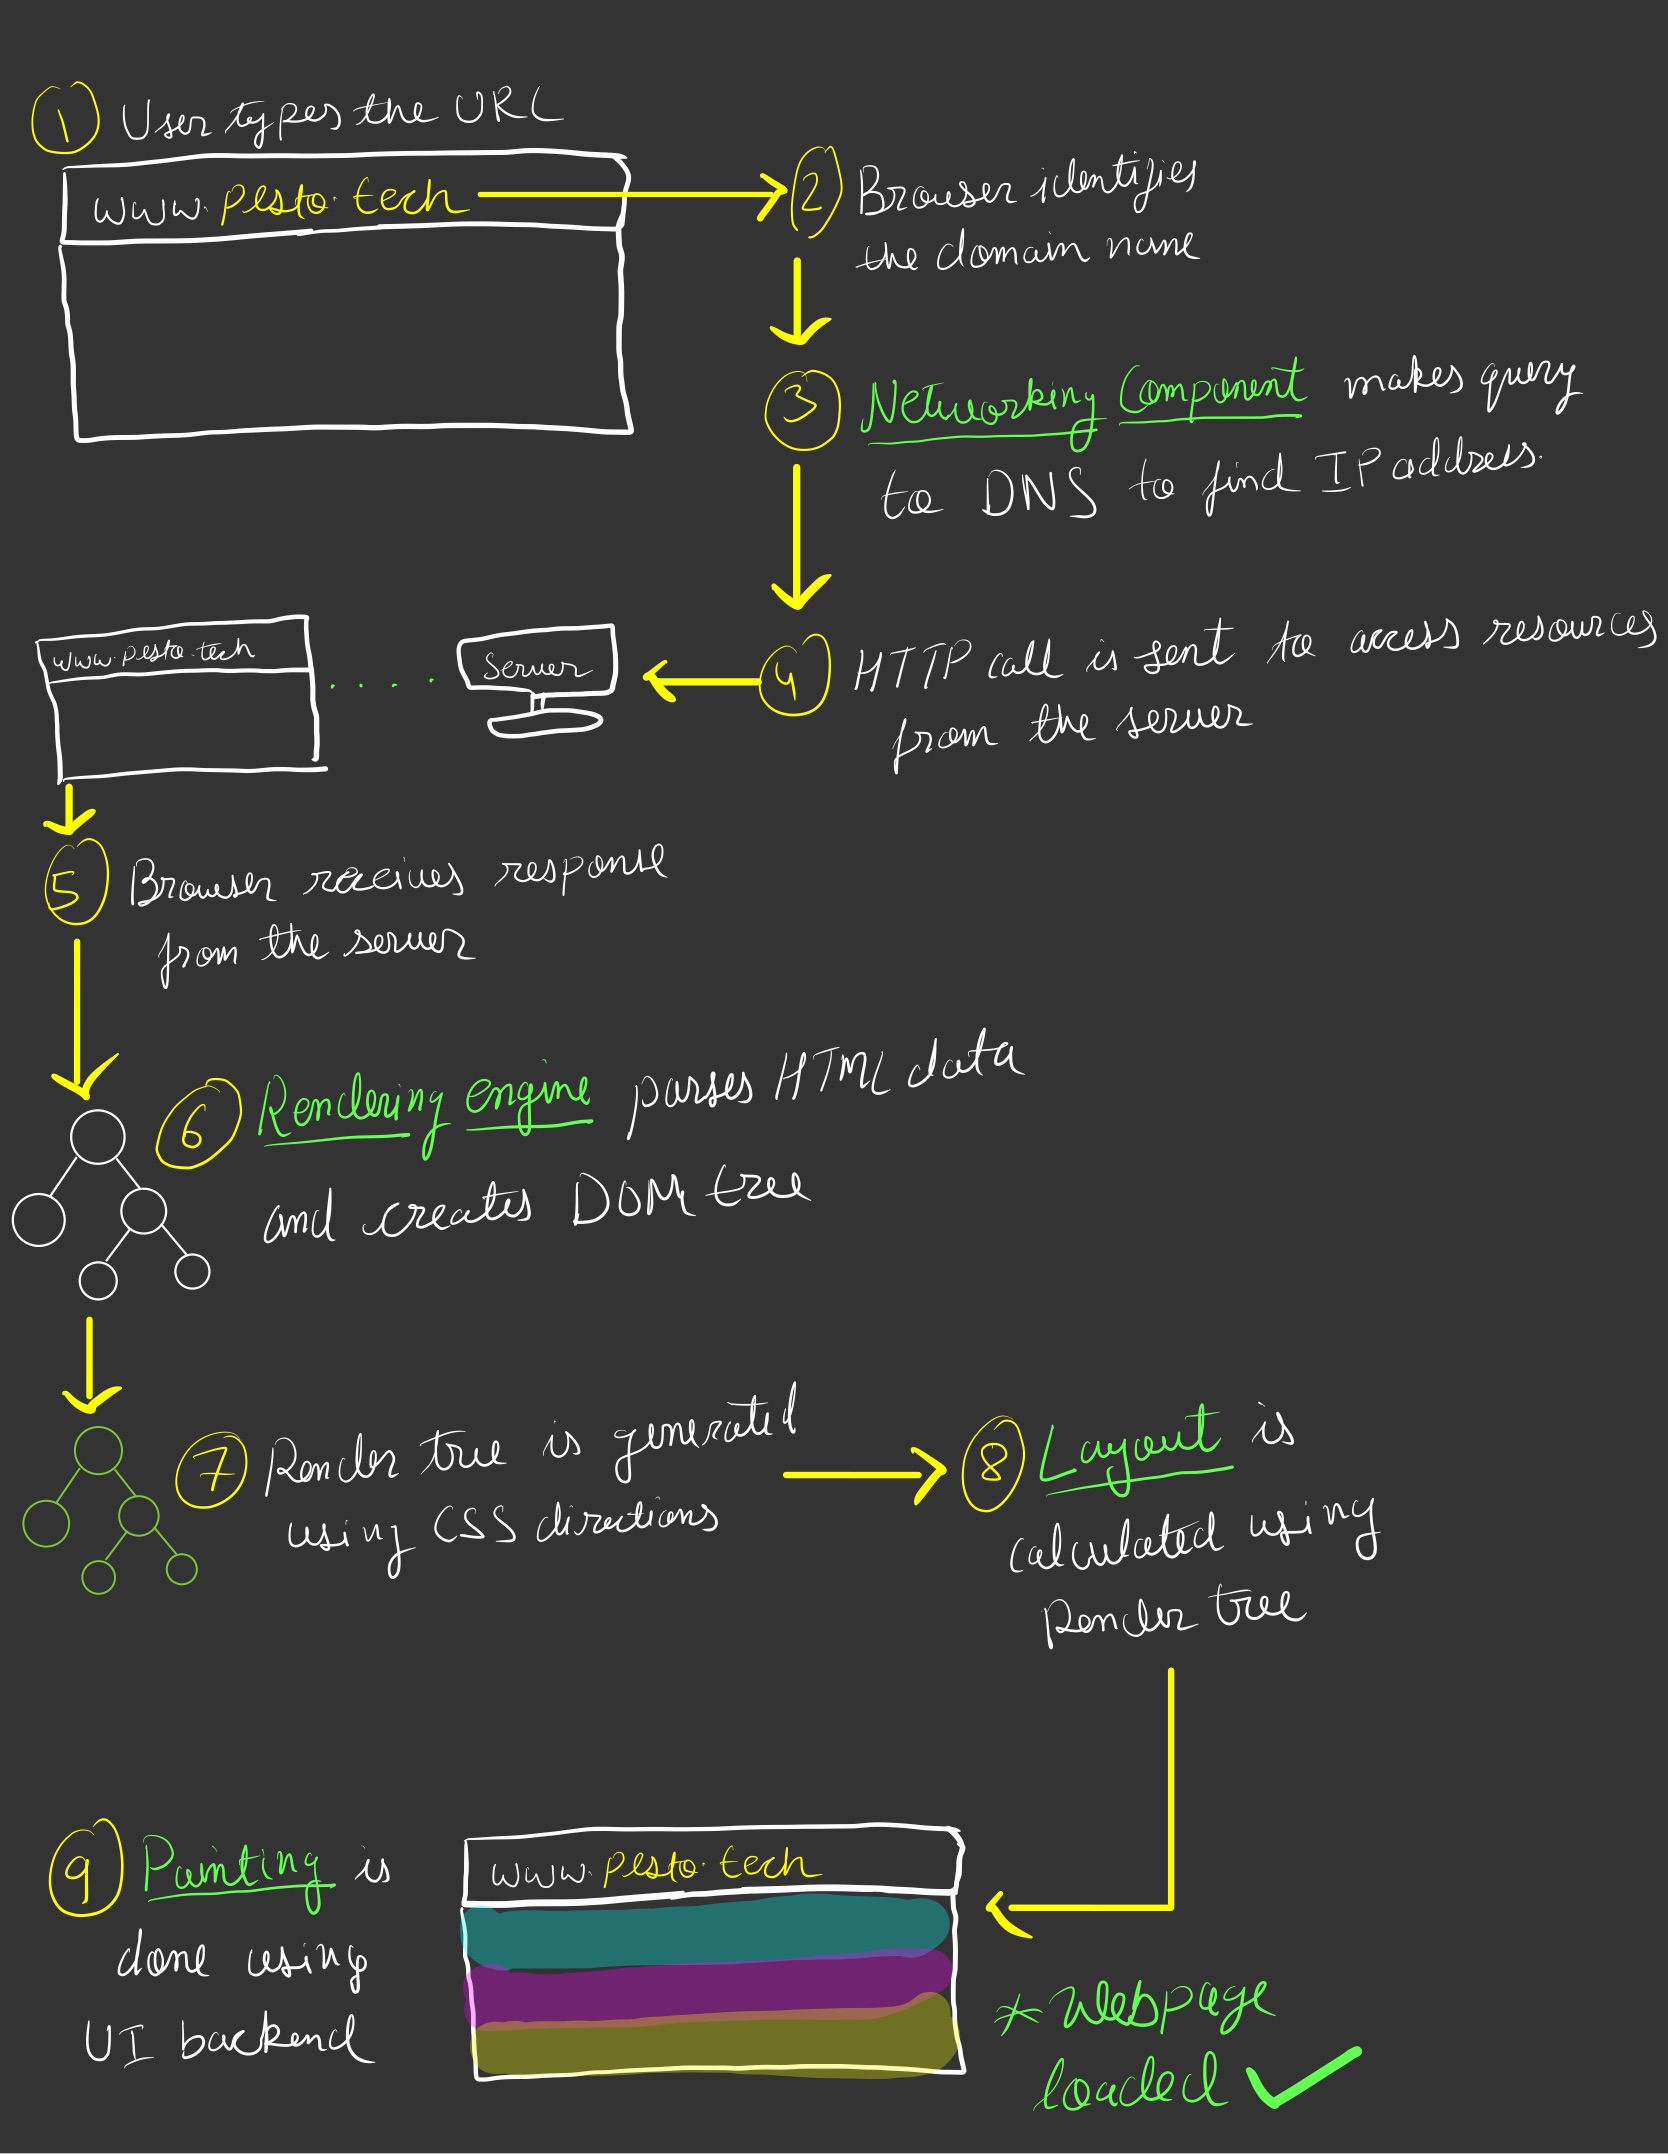 1 User types the URL
www.pesto.tech
2 Browser identifies
the domain name
3 Networking Component makes query
to DNS to find IP address.
www.pesto.tech
Server
4 HTTP call is sent to access resources
from the server
5 Browser receives response
from the server
6 Rendering engine parses HTML data
and creates DOM tree
7 Render tree is generated
using CSS directions
8 Layout is
calculated using
Render tree
9 Painting is
done using
UI backend
www.pesto.tech
* Webpage
loaded ✓